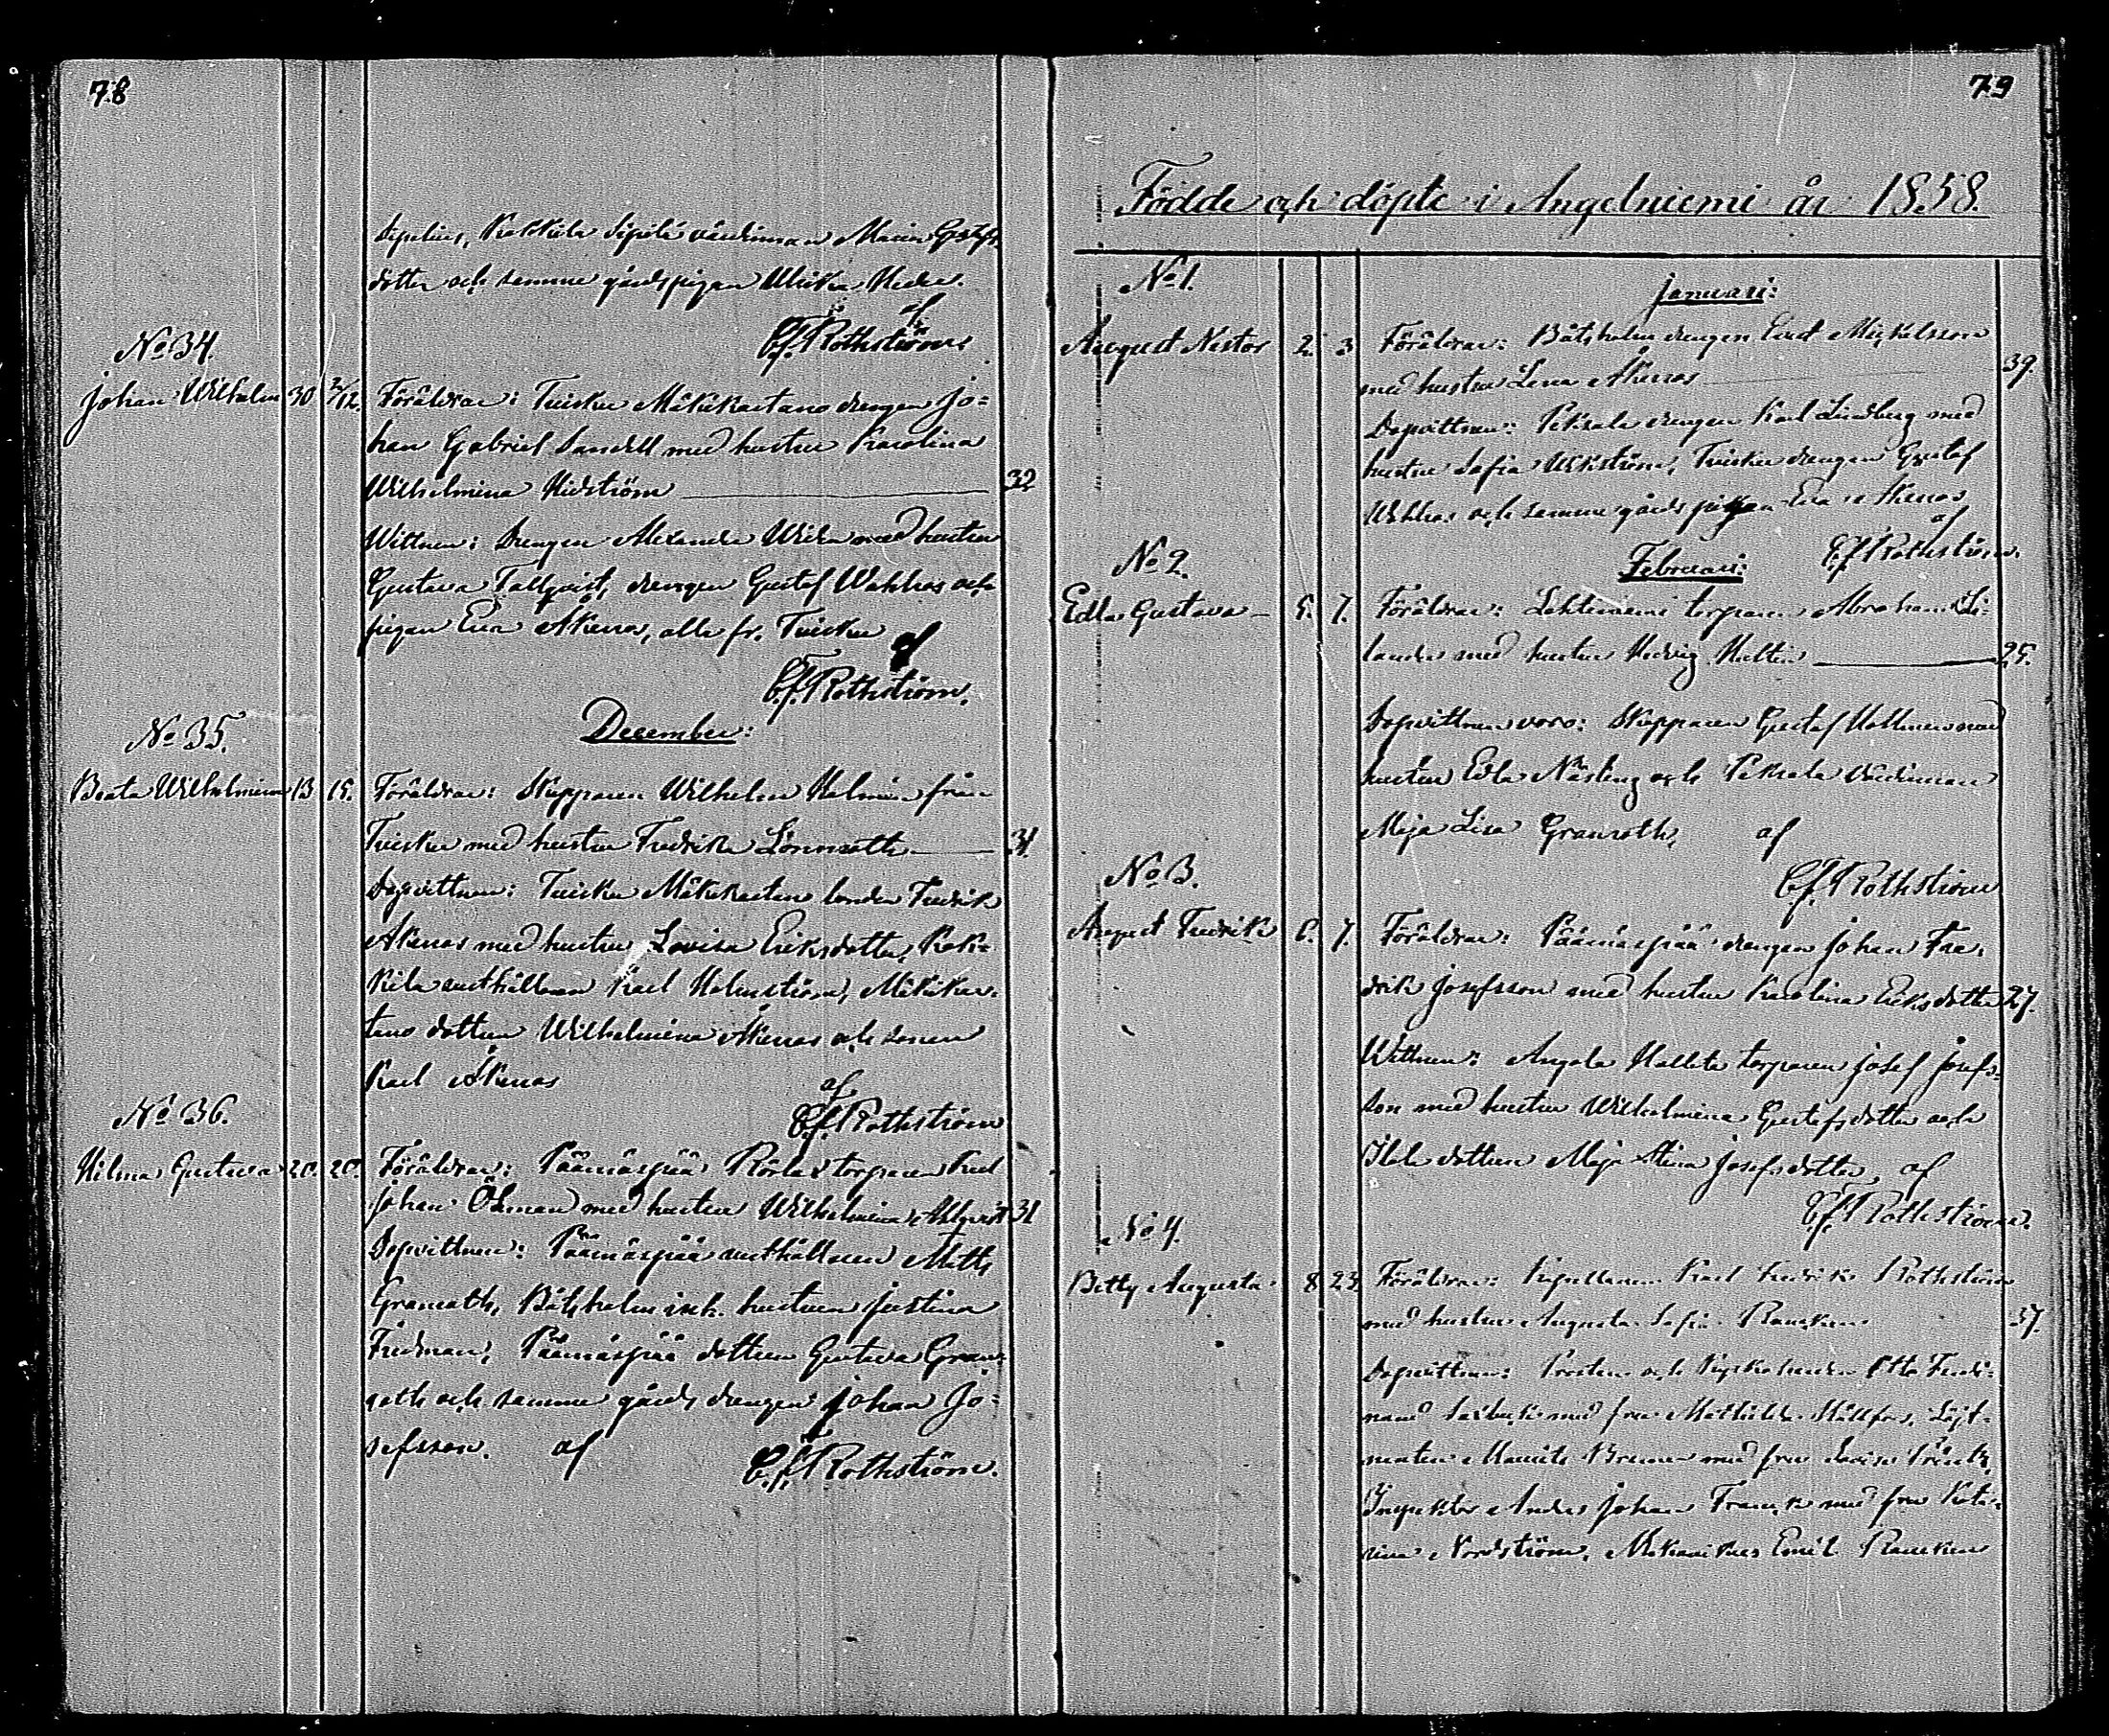 78
Sipelius, Kakkila Sipilä värdinnan Maria Gustafs-
dotter och samma gårds pigan Ulrika Heder.
af
C. f. Rothström.
No 34.
Johan Wilhelm 30 2/12. Föräldrar: Tuisku Mäkikartano drengen Jo=
han Gabriel Sandell med hustru Karolina
Wilhelmina Hidström 32
Wittnen: Drengen Alexander Widen med hustru
Gustava Tallqvist, drengen Gustaf Wahlros och
pigan Eva Åkerros, alla fr. Tuisku
af
C. f. Rothström.
December:
No 35.
Beata Wilhelmina 13 15. Föräldrar: Skepparen Wilhelm Helmén från
Tuisku med hustru Fredrika Lönnroth 31.
Dopvittnen: Tuisku Mäkikartano bonden Fredrik
Åkerros med hustru Lovisa Eriksdotter, Kak-
kila rusthållaren Karl Holmström, Mäkikar-
tano dottren Wilhelmina Åkerros och sonen
Karl Åkerros
af
C. f. Rothström
No 36.
Hilma Gustava 20. 20. Föräldrar: Päärnäspää torparen Karl
Johan Öhman med hustru Wilhelmina Ahlqvist 31
Dopvittnen: Päärnäspää rusthållaren Matts
Granroth, Båtsholm hustrun Justina
Fredman, Päärnäspää dottren Gustava Gran-
roth och samma gårds drengen Johan Jo=
sefsson. af
C. f. Rothström.
79
Födde och döpte i Angelniemi år 1858.
No 1.
Januari:
August Nestor 2. 3 Föräldrar: Båtsholm drengen Enst Mickelsson
med hustru Lena Åkerros 39.
Dopvittnen: Peksala drengen Karl Lindberg med
hustru Sofia Wikström, Tuisku drengen Gustaf
Wahlros och samma gårds pigan Eva Åkerros
af
C. f. Rothström.
Februari:
No 2.
Edla Gustava 5. 7. Föräldrar: Lehtiniemi torparen Abraham Se-
lander med hustru Hedvig Hultin 25.
Dopvittnen voro: Skepparen Gustaf Hollmén med
hustru Edla Näsling och Peksala värdinnan
Maja Lisa Granroth, af
C. f. Rothström
No 3.
August Fredrik 6. 7. Föräldrar: Päärnäspää drengen Johan Fre-
drik Josefsson med hustru Karolina Eriksdotter 27.
Wittnen: Angela Hallela torparen Josef Josefs-
son med hustru Wilhelmina Gustafsdotter och
dottren Maja Stina Josefsdotter, af
C. f. Rothström.
No 4.
Betty Augusta 8 23. Föräldrar: Kapellanen Karl Fredrik Rothström
med hustru Augusta Sofia Rancken 37.
Dopvittnen: Prosten och Kyrkoherden Otto Ferdi-
nand med fru Mathilda Löjt-
nanten Bruun med fru Lovisa
Inspektor Anders Johan Franck med fru Kata-
rina Nordström, Mekanikus Emil Rancken